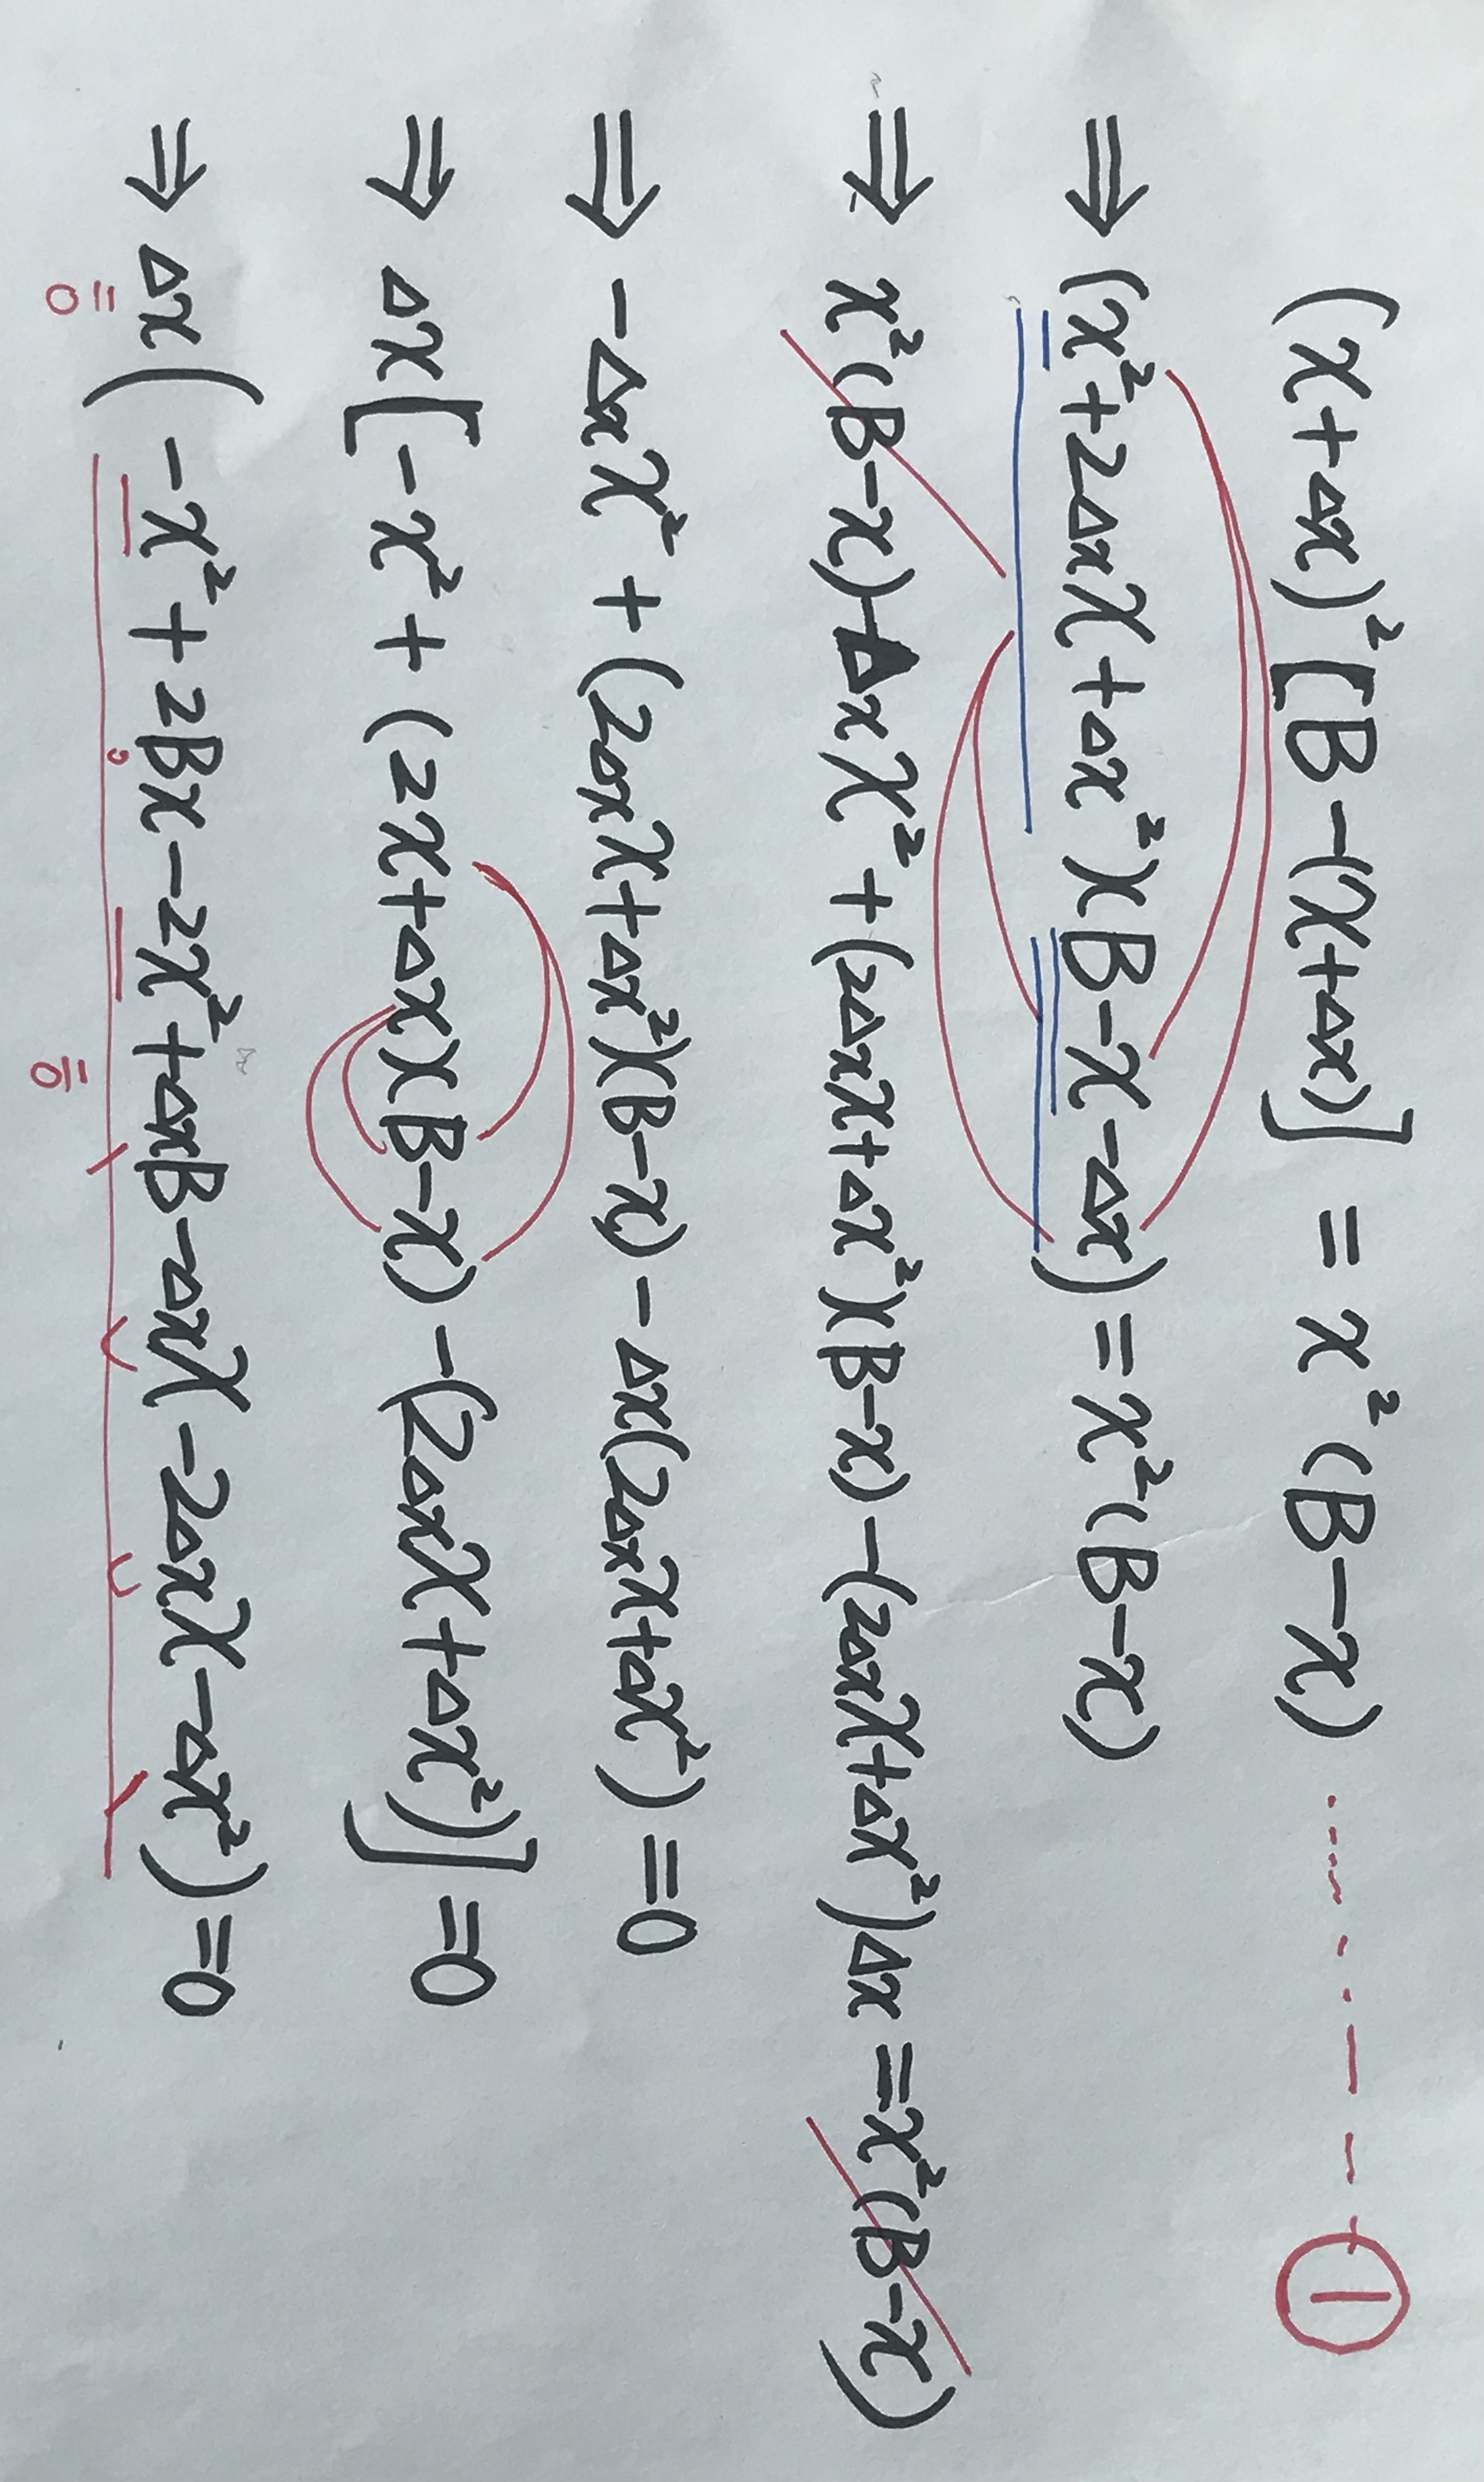 (x+Δx)²[B-(x+Δx)] = x²(B-x) ............ ①
⇒ (x²+2Δxx+Δx²)(B-x-Δx) = x²(B-x)
⇒ x²(B-x)-Δxx²+(2Δxx+Δx²)(B-x)-(2Δxx+Δx²)Δx = x²(B-x)
⇒ -Δxx²+(2Δxx+Δx²)(B-x)-Δx(2Δxx+Δx²) = 0
⇒ Δx[-x²+(2x+Δx)(B-x)-(2Δxx+Δx²)] = 0
⇒ Δx(-x²+2Bx-2x²+ΔxB-Δxx-2Δxx-Δx²) = 0
=0 =0